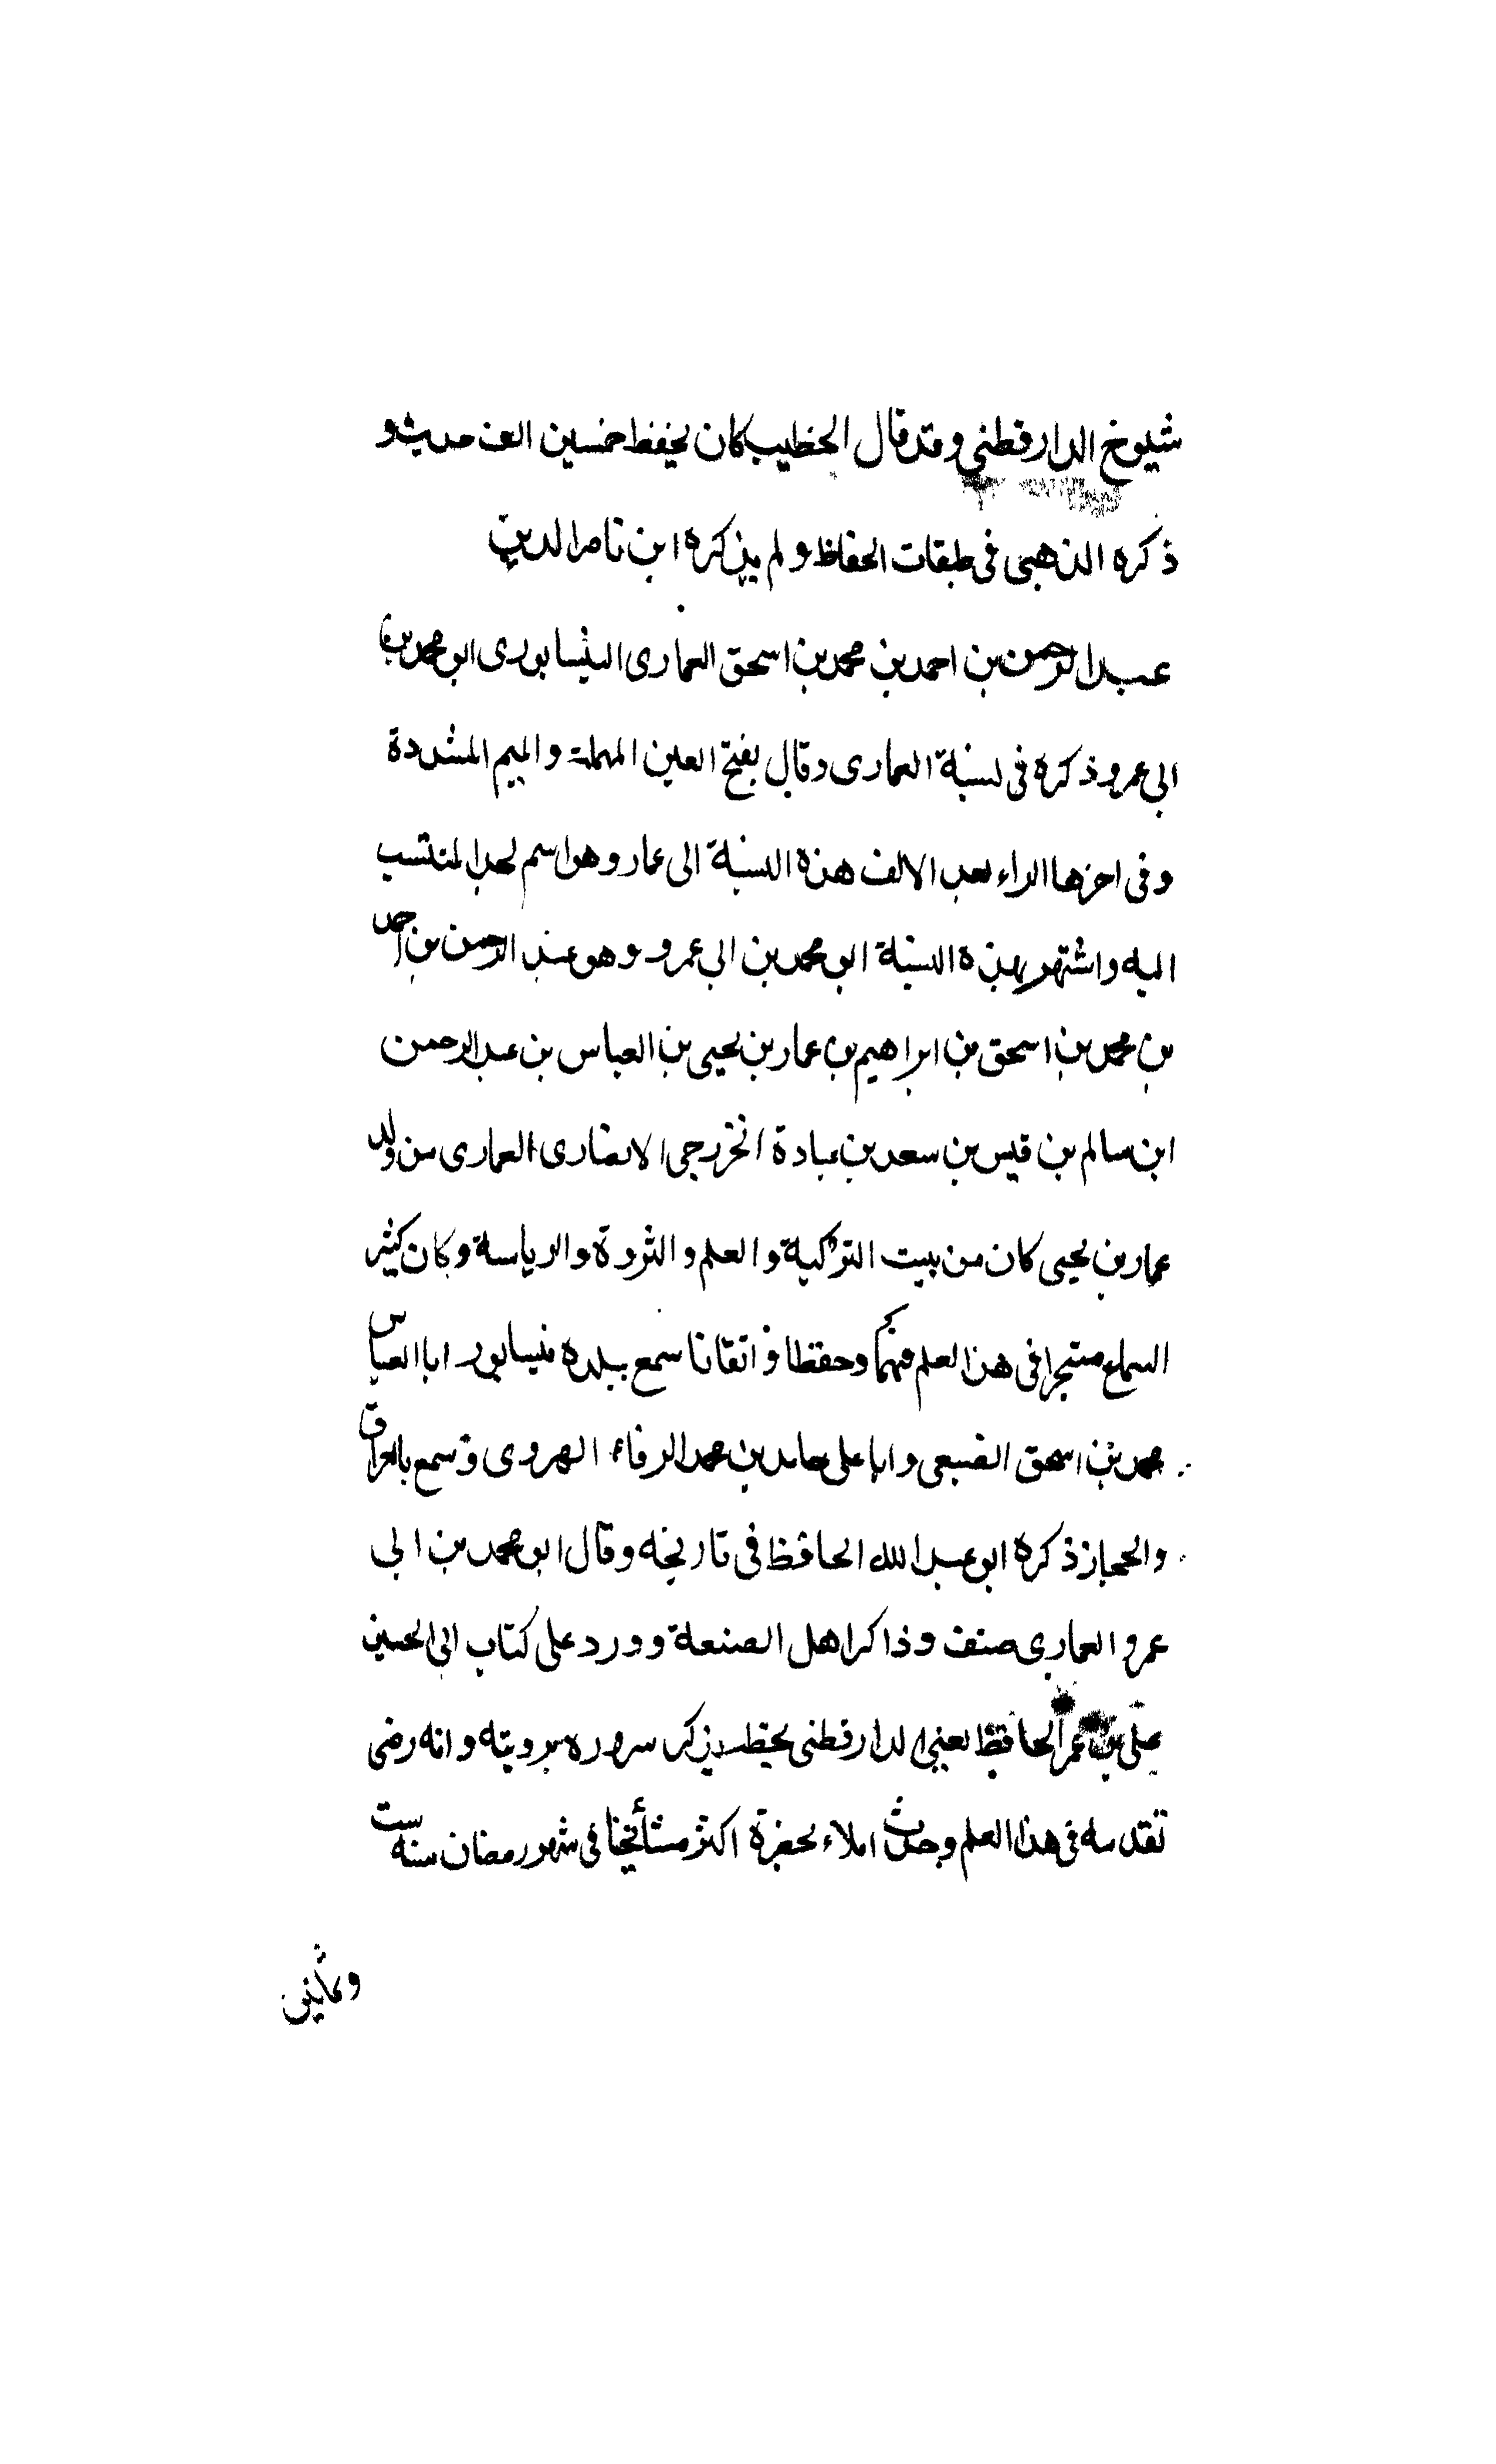 شيوخ الدارقطني وقد قال الخطيب كان يحفظ خمسين الف حديث و
ذكره الذهبى فى طبقات الحفاظ ولم يذكره ابن ناصر الدين
عبد الرحمن بن احمد بن محمد بن اسحق العمارى النيسابورى ابو محمد بن
ابى عمرو ذكره فى نسبة العمارى وقال بفتح العين المهملة والميم المشددة
وفى اخرها الراء بعد الالف هذه النسبة الى عمار وهو اسم لجد المنتسب
اليه واشتهر بهذه النسبة ابو محمد بن ابى عمرو وهو عبد الرحمن بن احمد
بن محمد بن اسحق بن ابراهيم بن عمار بن يحيى بن العباس بن عبد الرحمن
ابن سالم بن قيس بن سعد بن عبادة الخزرجى الانصارى العمارى من ولد
عمار بن يحيى كان من بيت التزكية والعلم والثروة والرياسة وكان كثير
السماع متبحرا فى هذا العلم فهما وحفظا و اتقانا سمع ببلده نيسابور ابا العباس
محمد بن اسحق الضبعى وابا على حامد بن محمد الرفاء الهروى و سمع بالعراق
والحجاز ذكره ابو عبد الله الحافظ فى تاريخه وقال ابو محمد بن ابى
عمرو العمارى صنف وذاكر اهل الصنعة وورد على كتاب ابى الحسين
على بن عمر الحافظ يعنى الدارقطنى بخطه يذكر سروره برويته وانه رضى
تقدمه فى هذا العلم وحدث املاء بحضرة اكثر مشائخنا فى شهر رمضان سنة ست
وثمانين